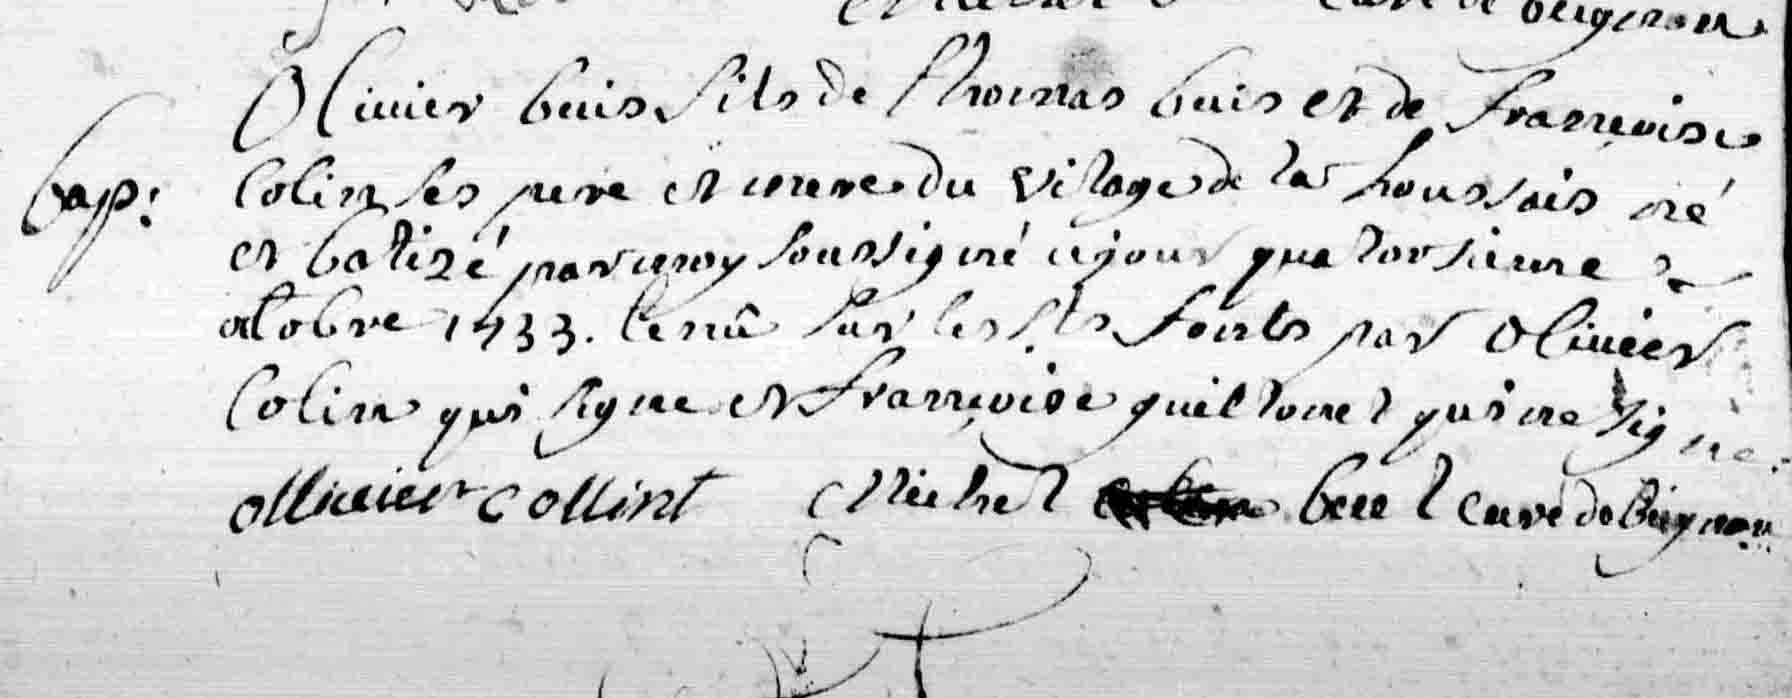 curé de buignon
Olivier buis fils de Thomas buis et de françoise
bap: Colin ses pere et mere du vilage de la houssais né
et batizé par moy soussigné cejour quatorsieme de
octobre 1733. tenû sur les sts fonts par Olivier
Colin qui signe et françoise guillonet qui ne signe.
ollivier collint Michel curé de buignon